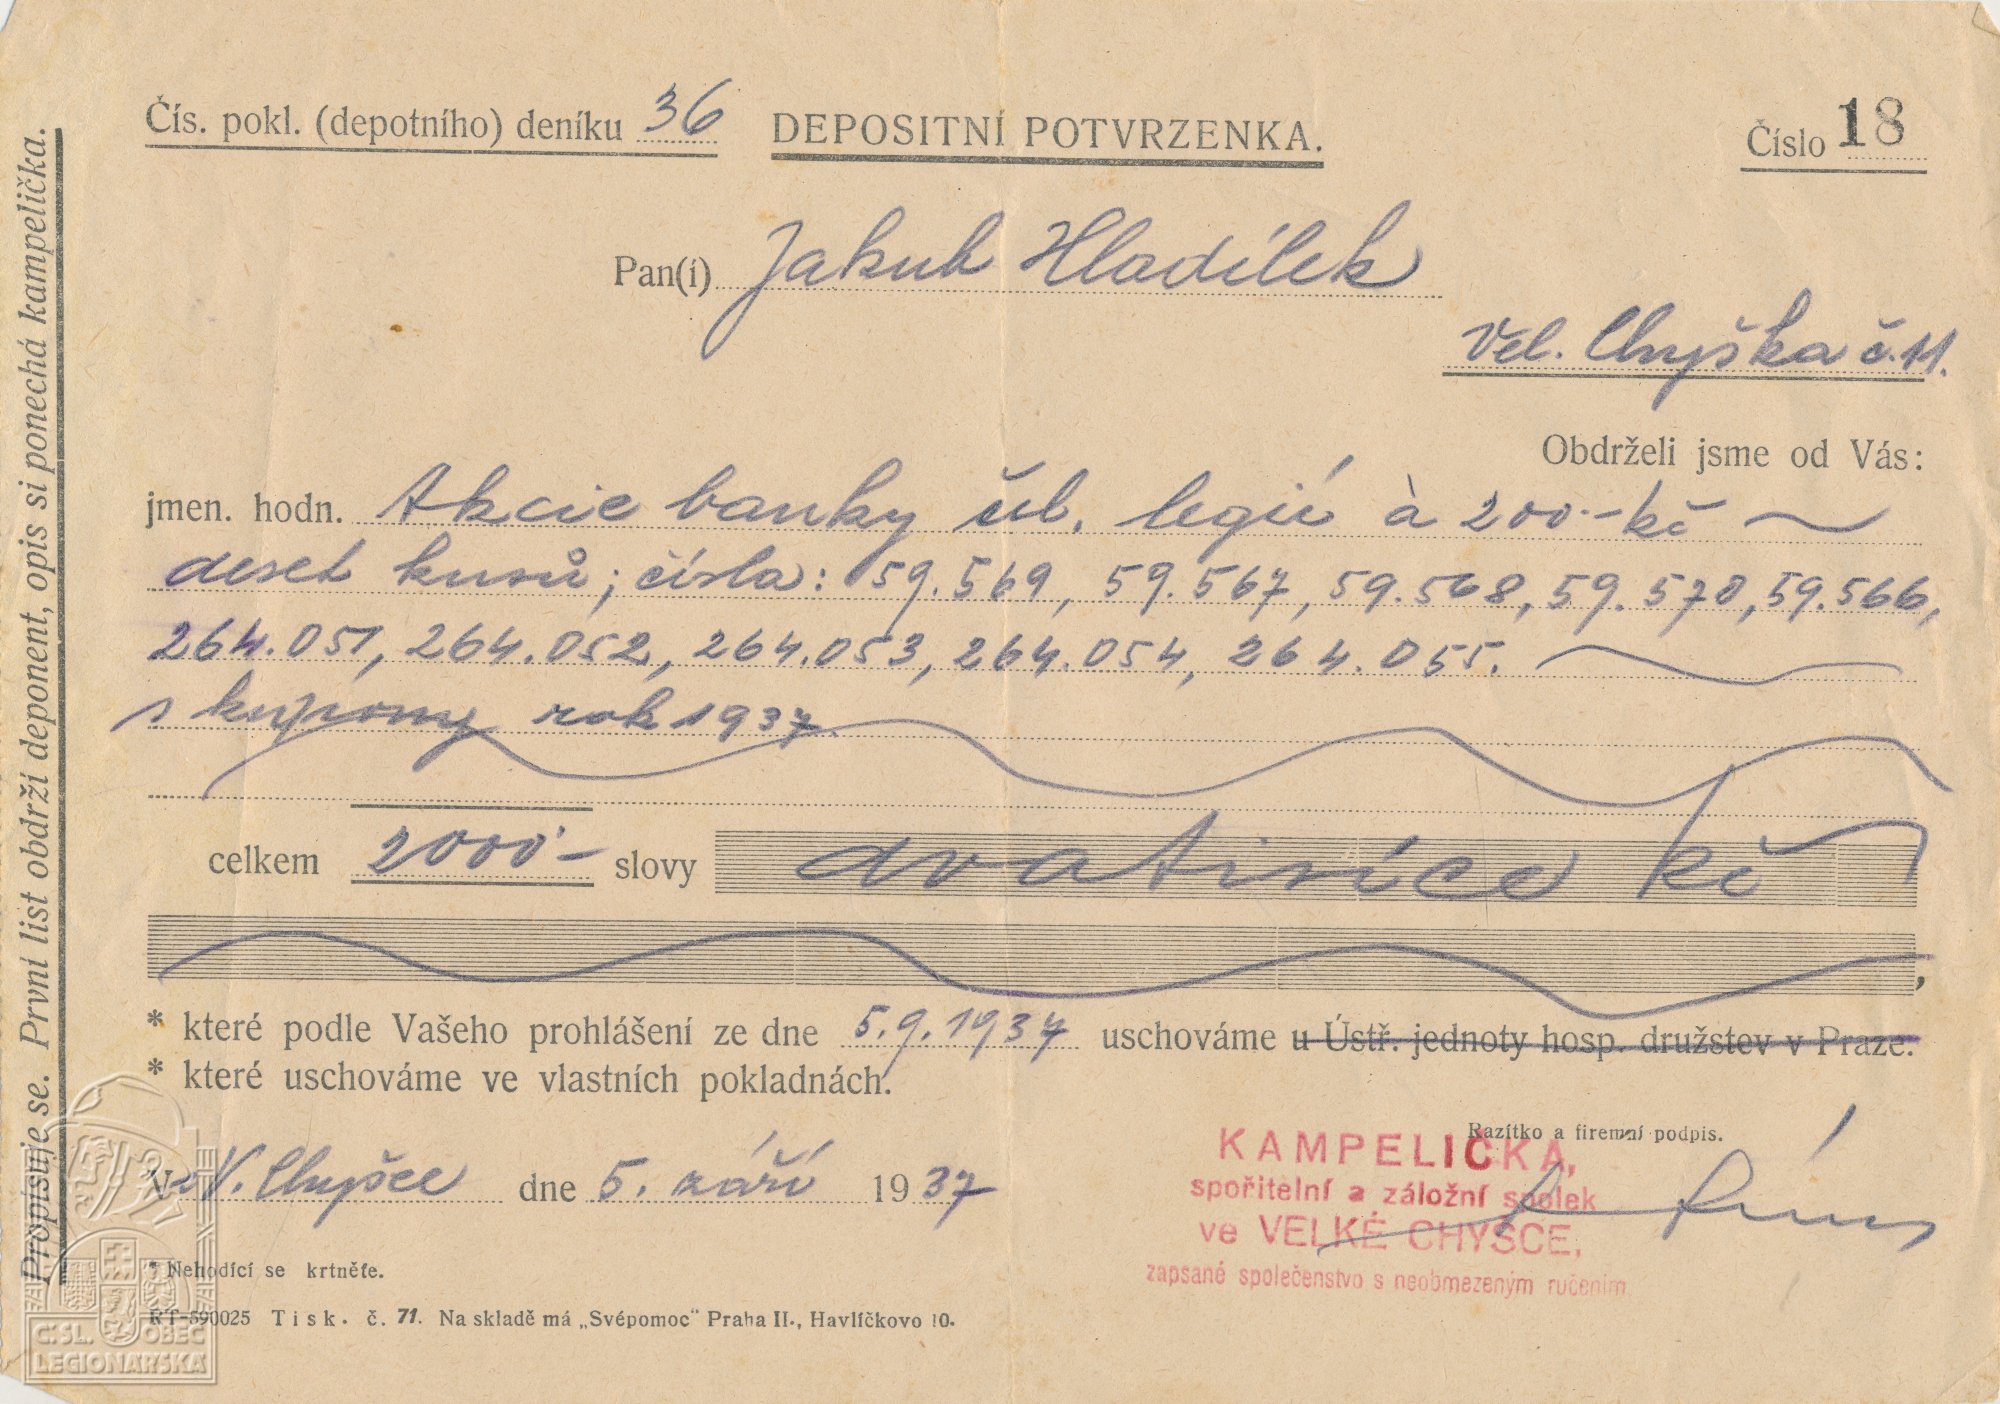 Čís. pokl. (depotního) deníku 36 DEPOSITNÍ POTVRZENKA. Číslo 18
Pan(í) Jakub Hladílek
Vel. Chyška č. 11.
Obdrželi jsme od Vás:
jmen. hodn. Akcie banky čsl. legií à 200.- kč
deset kusů; čísla: 59.569, 59.567, 59.568, 59.570, 59.566,
264.051, 264.052, 264.053, 264.054, 264.055.
s kupony rok 1937.
celkem 2000.- slovy dvatisíce kč
,
* které podle Vašeho prohlášení ze dne 5.9.1937 uschováme u Ústř. jednoty hosp. družstev v Praze.
* které uschováme ve vlastních pokladnách.
Razítko a firemní podpis.
V V. Chyšce dne 5. září 1937
KAMPELIČKA,
spořitelní a záložní spolek
ve VELKÉ CHYŠCE,
zapsané společenstvo s neobmezeným ručením
* Nehodící se krtněte.
RT-590025 Tisk. č. 71. Na skladě má „Svépomoc" Praha II., Havlíčkovo 10.
Propisuje se. První list obdrží deponent, opis si ponechá kampelička.
Č.SL. OBEC
LEGIONÁŘSKÁ